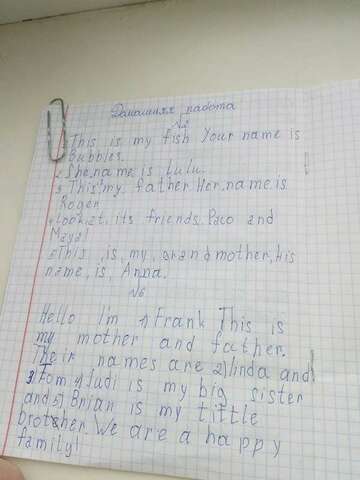 Домашняя работа
№2
1 This is my fish Your name is
Bubbles.
2 She name is Lulu.
3 This my father. Her name is
Roger
4 Look at its friends. Paco and
Maya!
5 This is my grandmother, His
name is Anna.
№6
Hello I'm 1) Frank This is
my mother and father.
Their names are 2) linda and
3) Tom 4) Judi is my big sister
and 5) Brian is my tittle
brother. We are a happy
family!